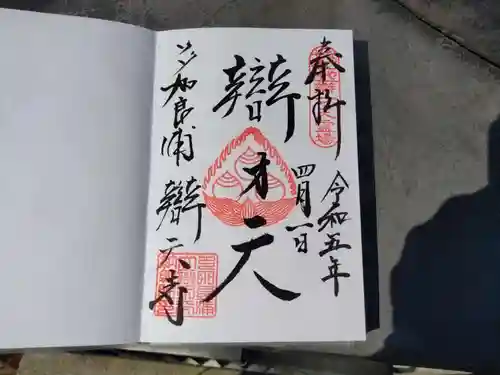 奉拝
令和五年
四月一日
辯才天
多加良浦
辯天寺